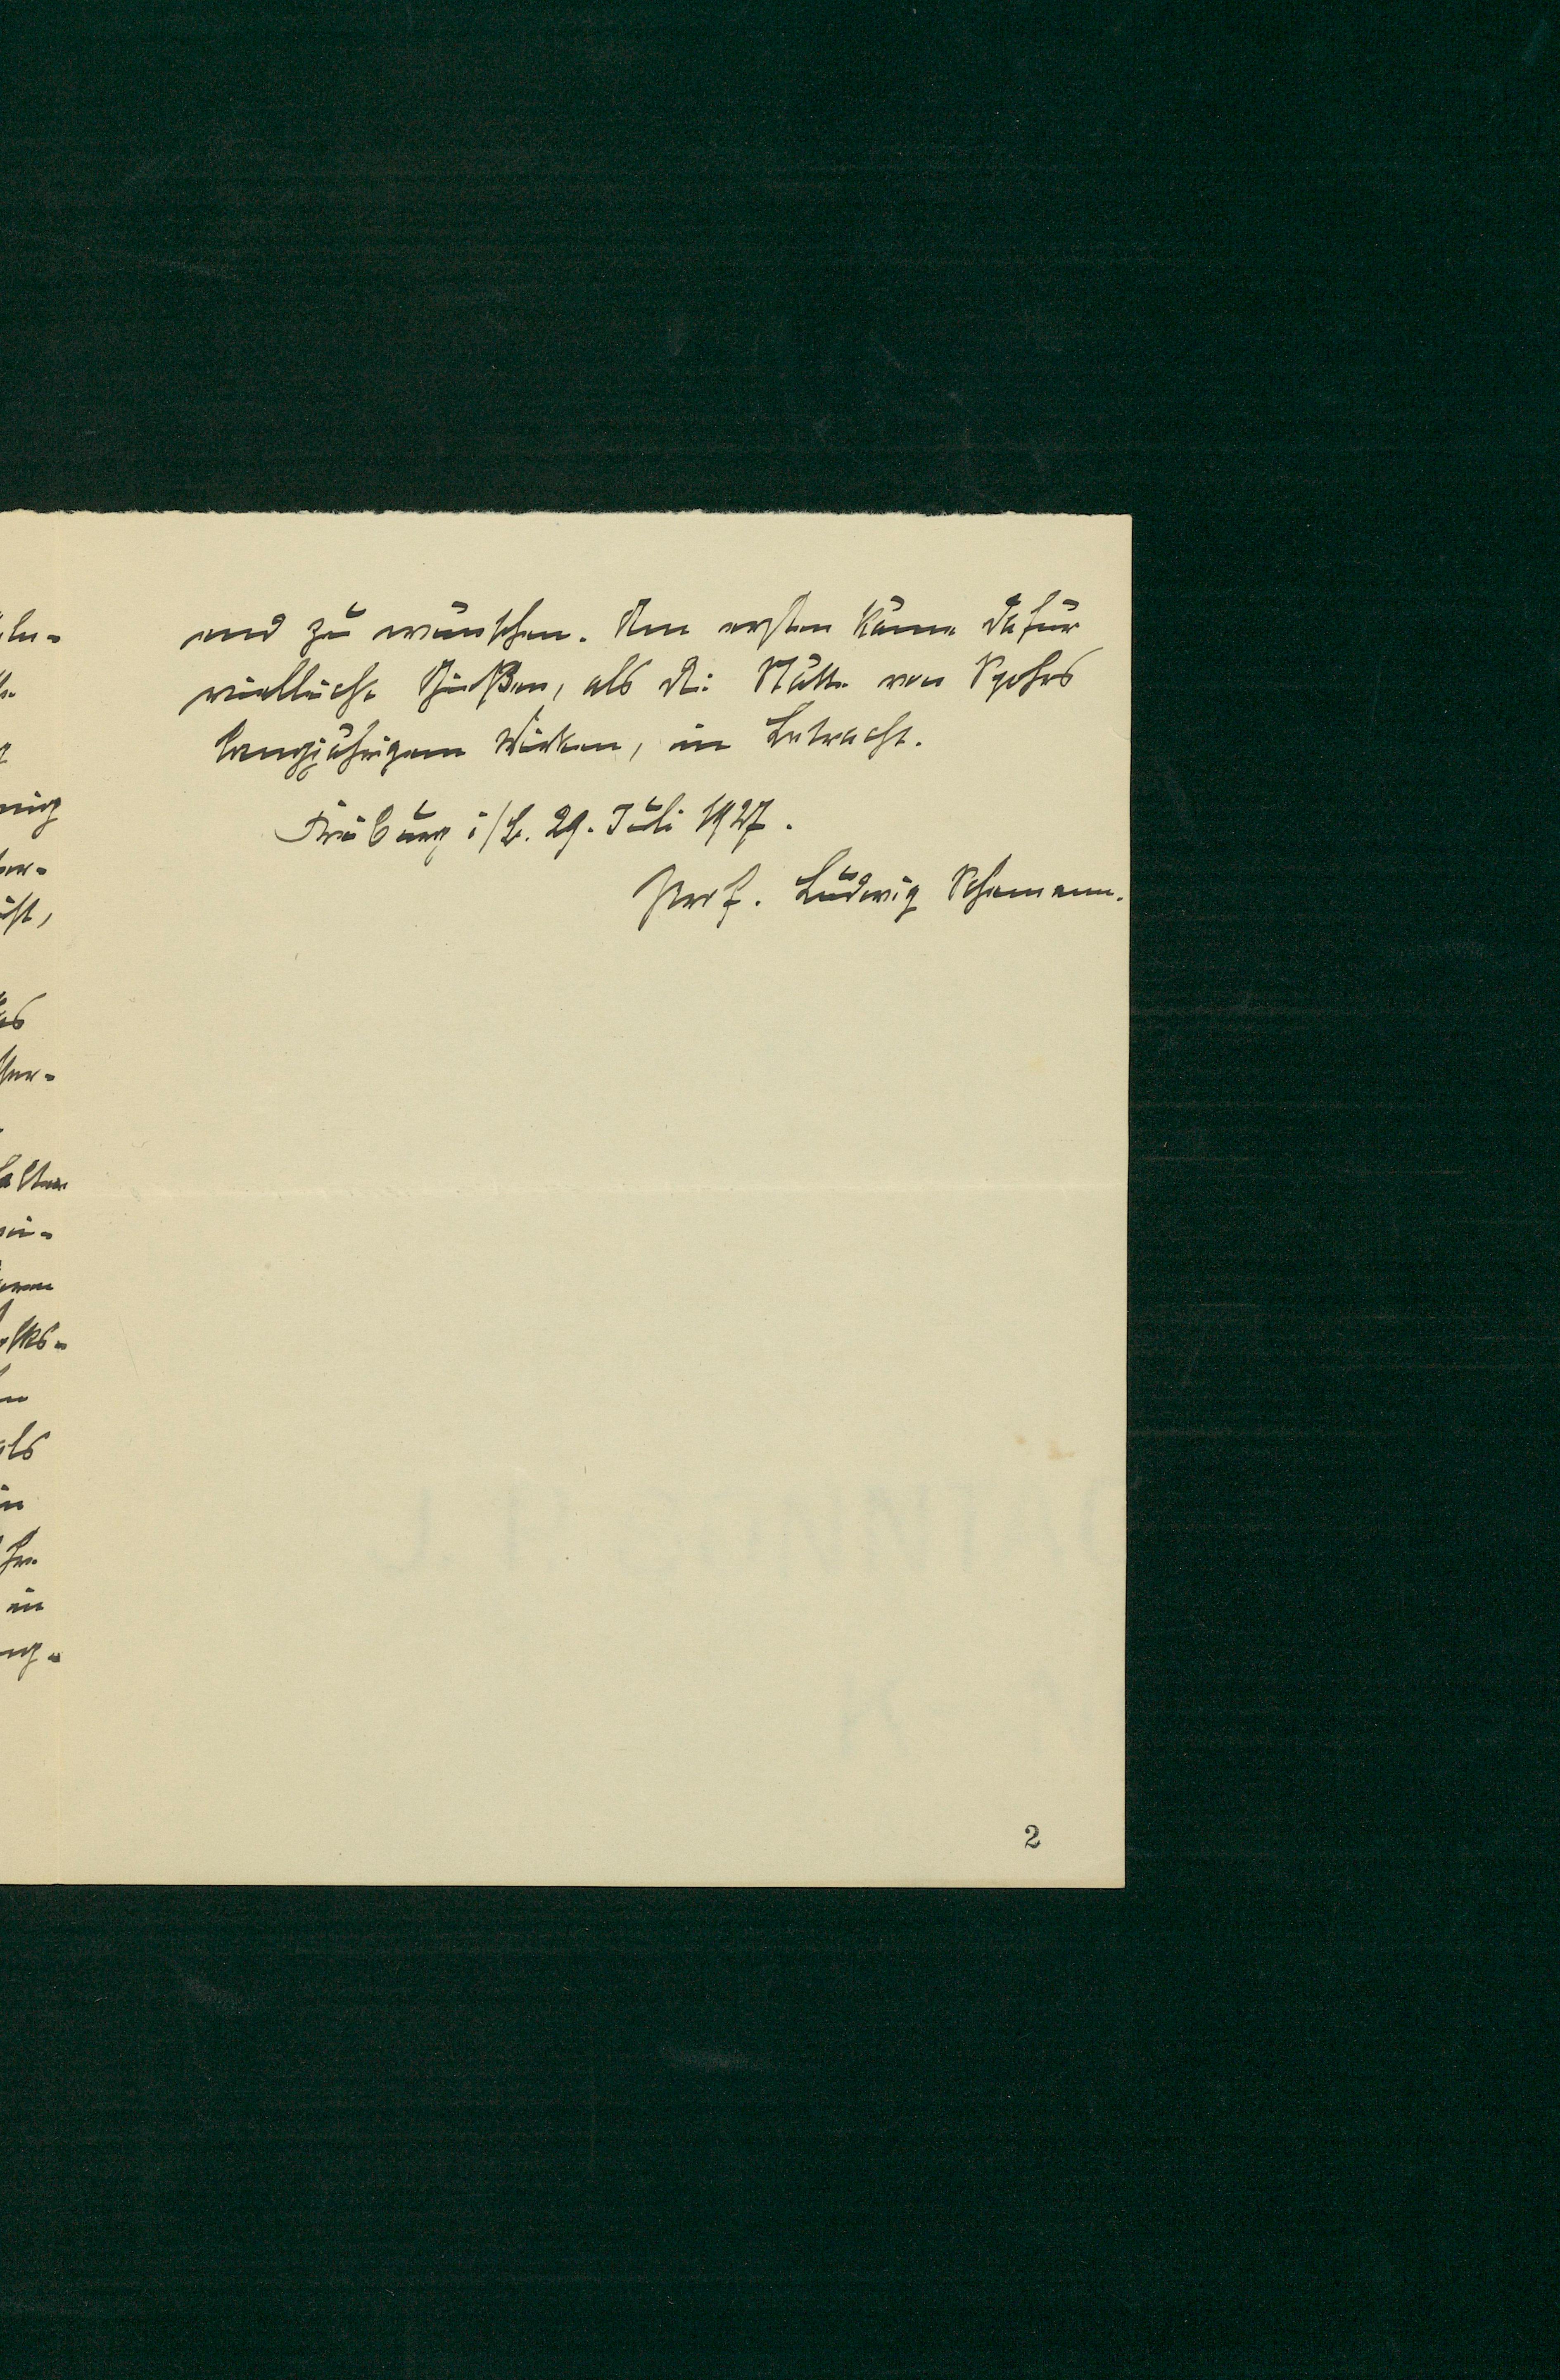 end zu wünschen. Am ersten käme dafür
vielleicht Gießen, als die Stätte von Spohrs
langjährigem Wirken, in Betracht.
Freiburg i/B. 29. Juli 1927.
Prof. Ludwig Schemann.
2